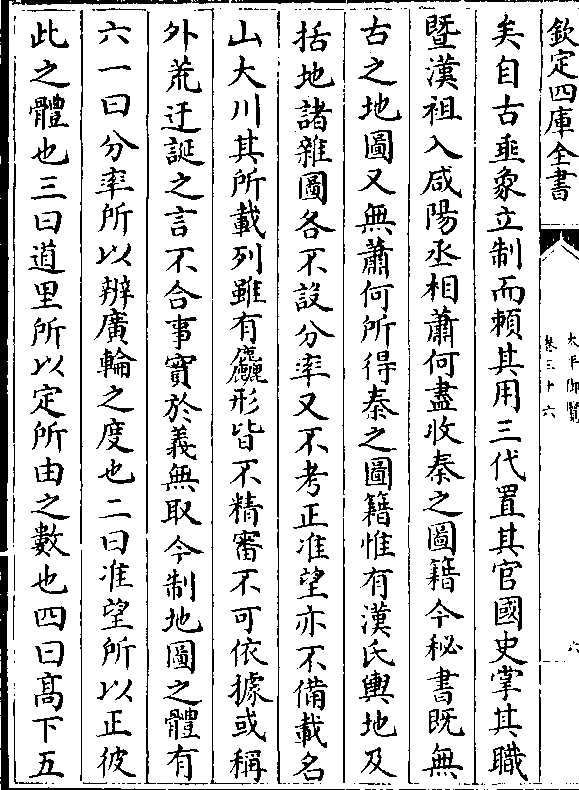 欽定四庫全書
太平御覽
卷三十六
六
矣自古垂象立制而賴其用三代置其官國史掌其職
暨漢祖入咸陽丞相蕭何盡收秦之圖籍今秘書既無
古之地圖又無蕭何所得秦之圖籍惟有漢氏輿地及
括地諸雜圖各不設分率又不考正准望亦不備載名
山大川其所載列雖有麤形皆不精審不可依據或稱
外荒迂誕之言不合事實於義無取今制地圖之體有
六一曰分率所以辨廣輪之度也二曰准望所以正彼
此之體也三曰道里所以定所由之數也四曰高下五